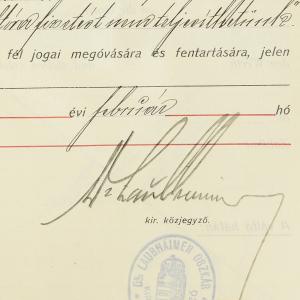 fizetést nem teljesíthetünk"
fél jogai megóvására és fentartására, jelen
évi február hó
Dr Laubhaimer
kir. közjegyző.
Dr. LAUBHAIMER OSZKÁR